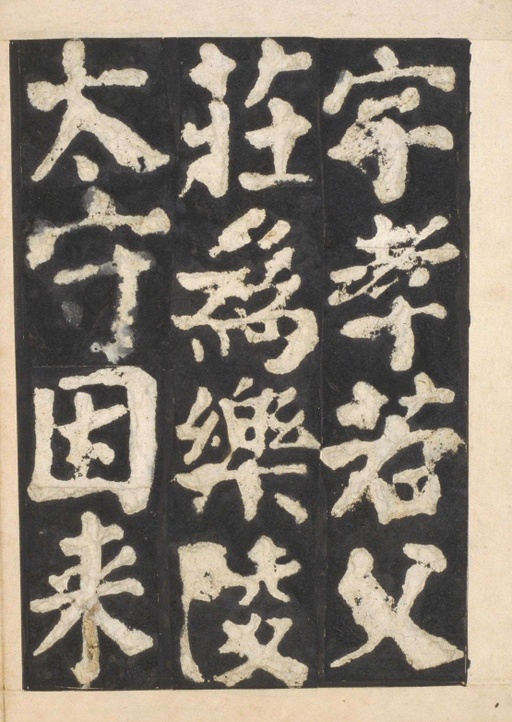 字孝若父
莊為樂陵
太守因来